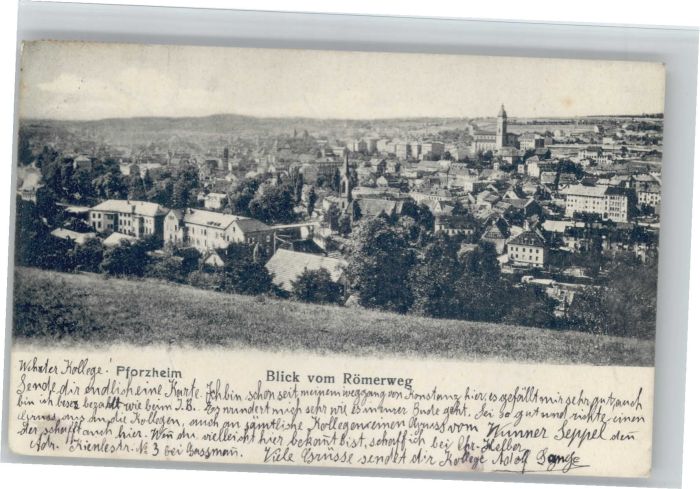 Werter Kollege! Pforzheim Blick vom Römerweg
Sende dir endlich eine Karte. Ich bin schon seit meinem weggang von Konstanz hier, es gefällt mir sehr gut, auch
bin ich besser bezahlt wie beim J.B. wundert mich sehr wie es immer Bude geht. Sei so gut und richte einen
Gruss aus an die Kollegen, auch an sämtliche Kolleginnen einen Gruss vom Nunner Seppel den
Der schafft auch hier. Wen du vielleicht hier bekant bist, schaff ich bei Chr. Helber
Adr. Kienlestr. No 3 bei Gassman. Viele Grüsse sendet dir Kollege Adolf